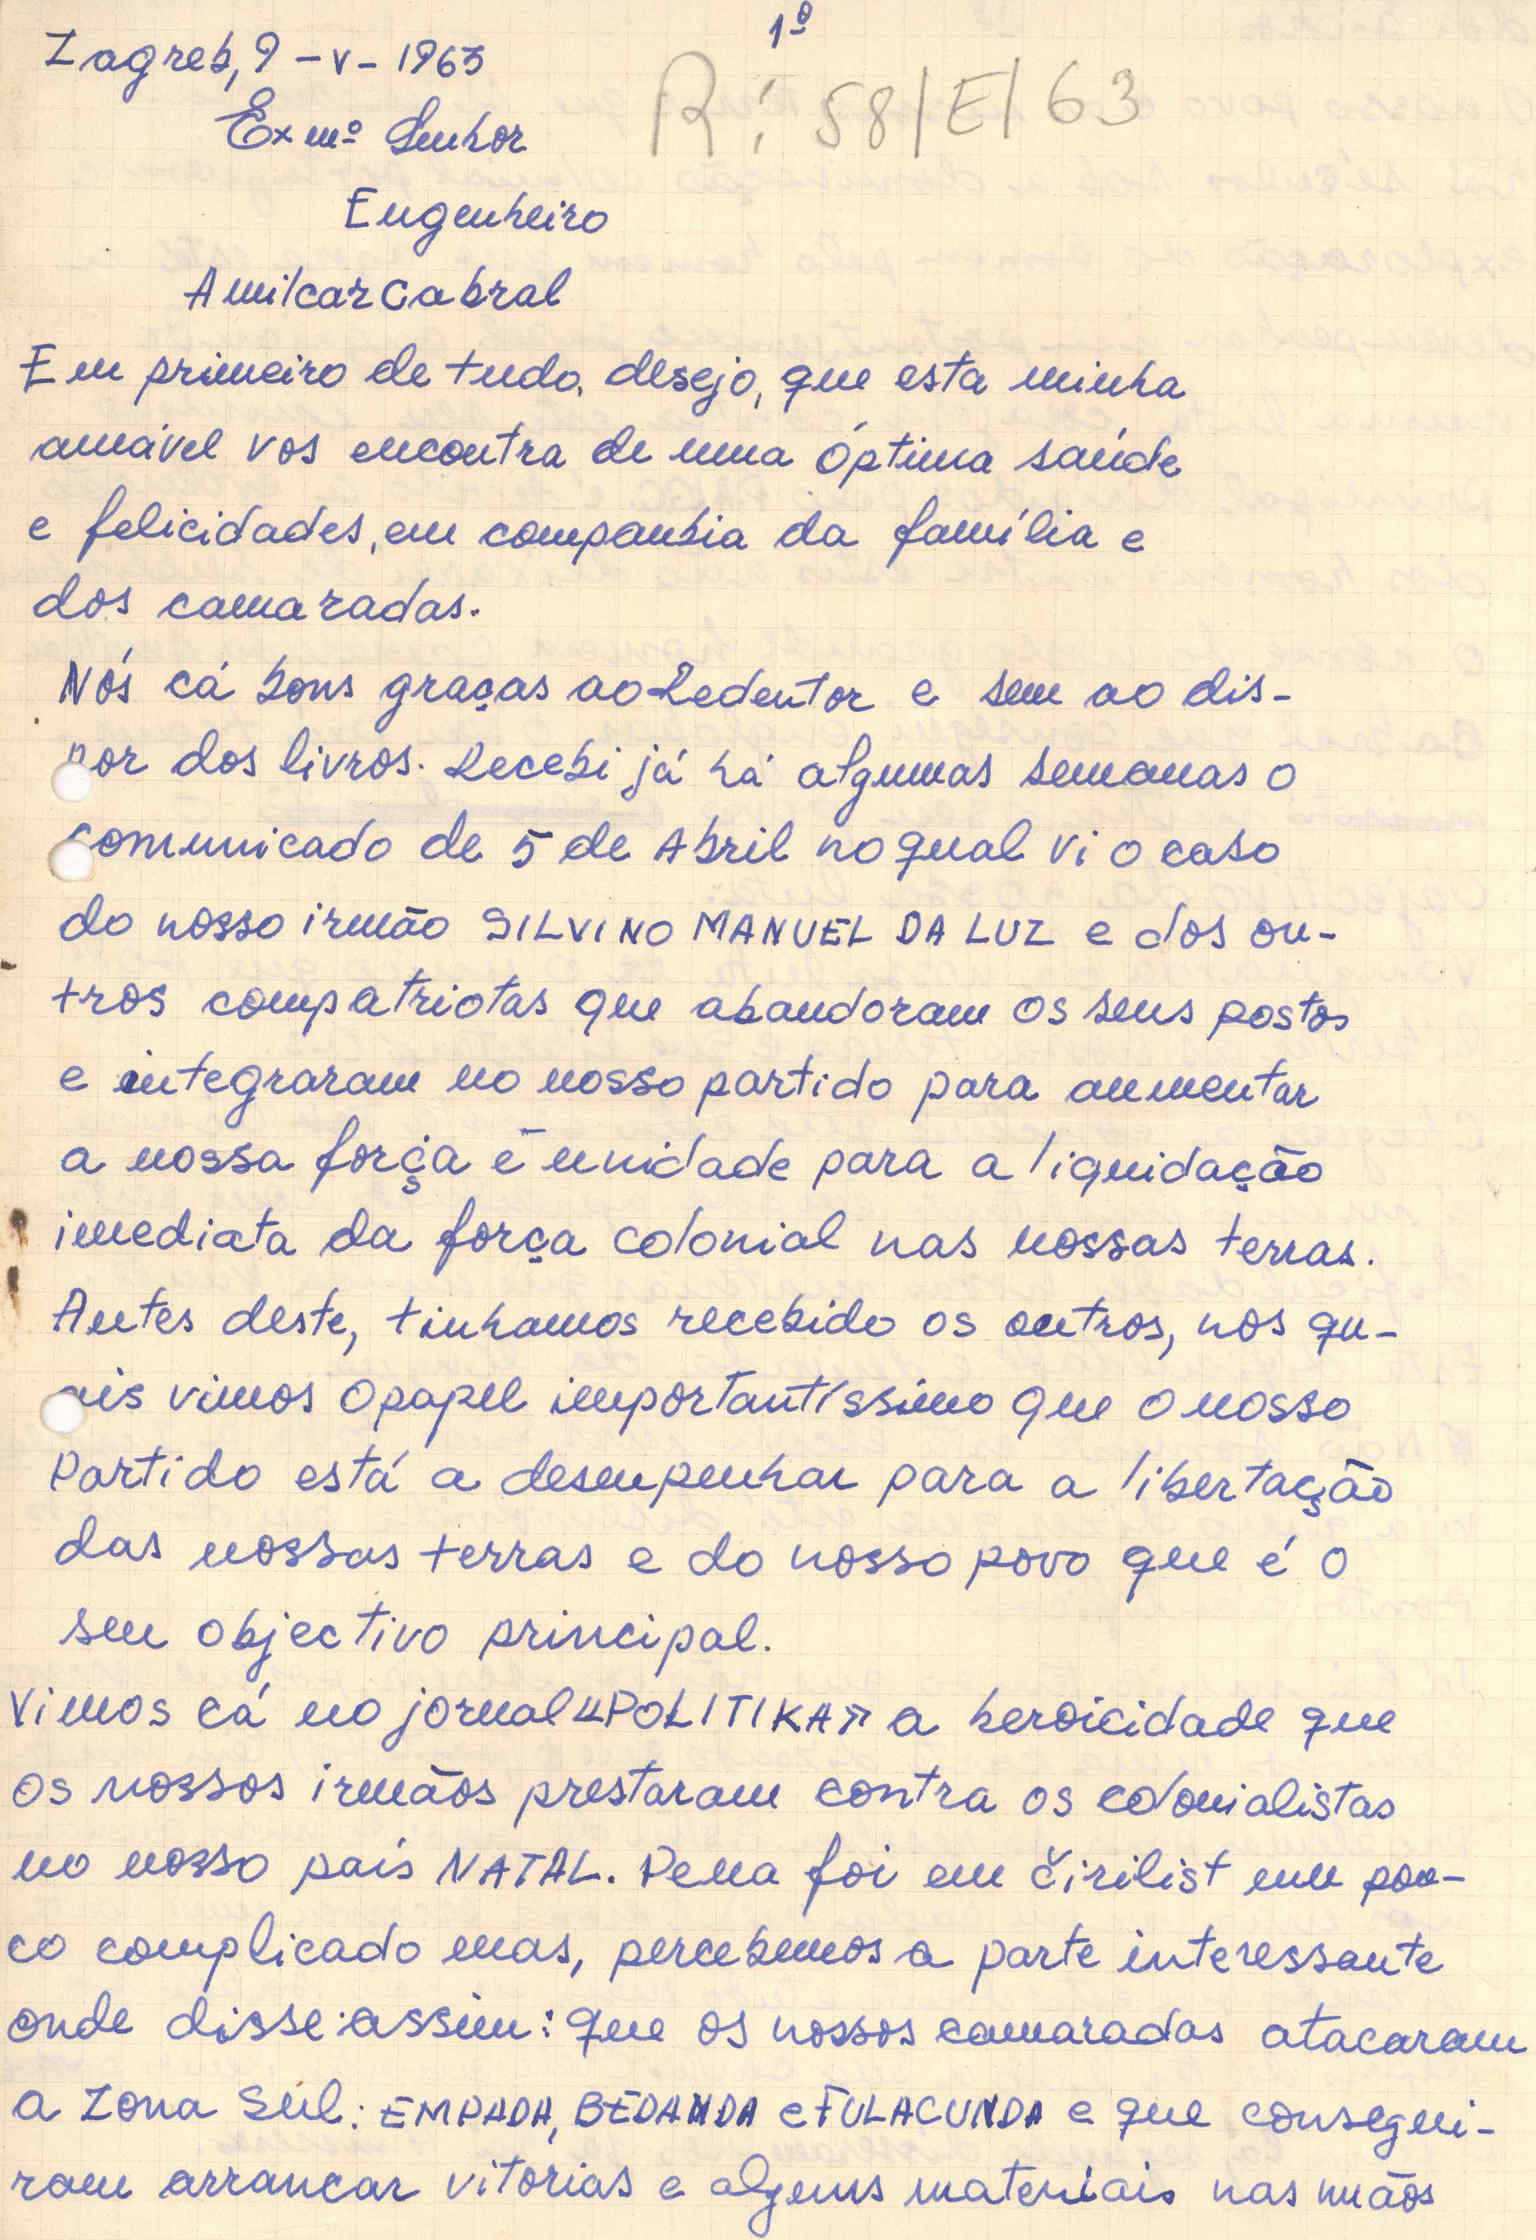 1º
Zagreb, 9 -V- 1963
R: 58/E/63
Exmº Senhor
Engenheiro
Amilcar Cabral
Em primeiro de tudo, desejo, que esta minha
amável vos encontra de uma óptima saúde
e felicidades, em companhia da família e
dos camaradas.
Nós cá bons graças ao Redentor e sem ao dis-
por dos livros. Recebi já há algumas semanas o
comunicado de 5 de Abril no qual vi o caso
do nosso irmão SILVINO MANUEL DA LUZ e dos ou-
tros compatriotas que abandoram os seus postos
e integraram no nosso partido para aumentar
a nossa força e unidade para a liquidação
imediata da força colonial nas nossas terras.
Antes deste, tinhamos recebido os outros, nos qu-
ais vimos o papel importantíssimo que o nosso
Partido está a desempenhar para a libertação
das nossas terras e do nosso povo que é o
seu objectivo principal.
Vimos cá no jornal "POLITIKA" a heroicidade que
os nossos irmãos prestaram contra os colonialistas
no nosso país NATAL. Pena foi em čirilist um pou-
co complicado mas, percebemos a parte interessante
onde disse: assim: que os nossos camaradas atacaram
a zona Sul: EMPADA, BEDANDA e FULACUNDA e que consegui-
ram arrancar vitorias e alguns materiais nas mãos